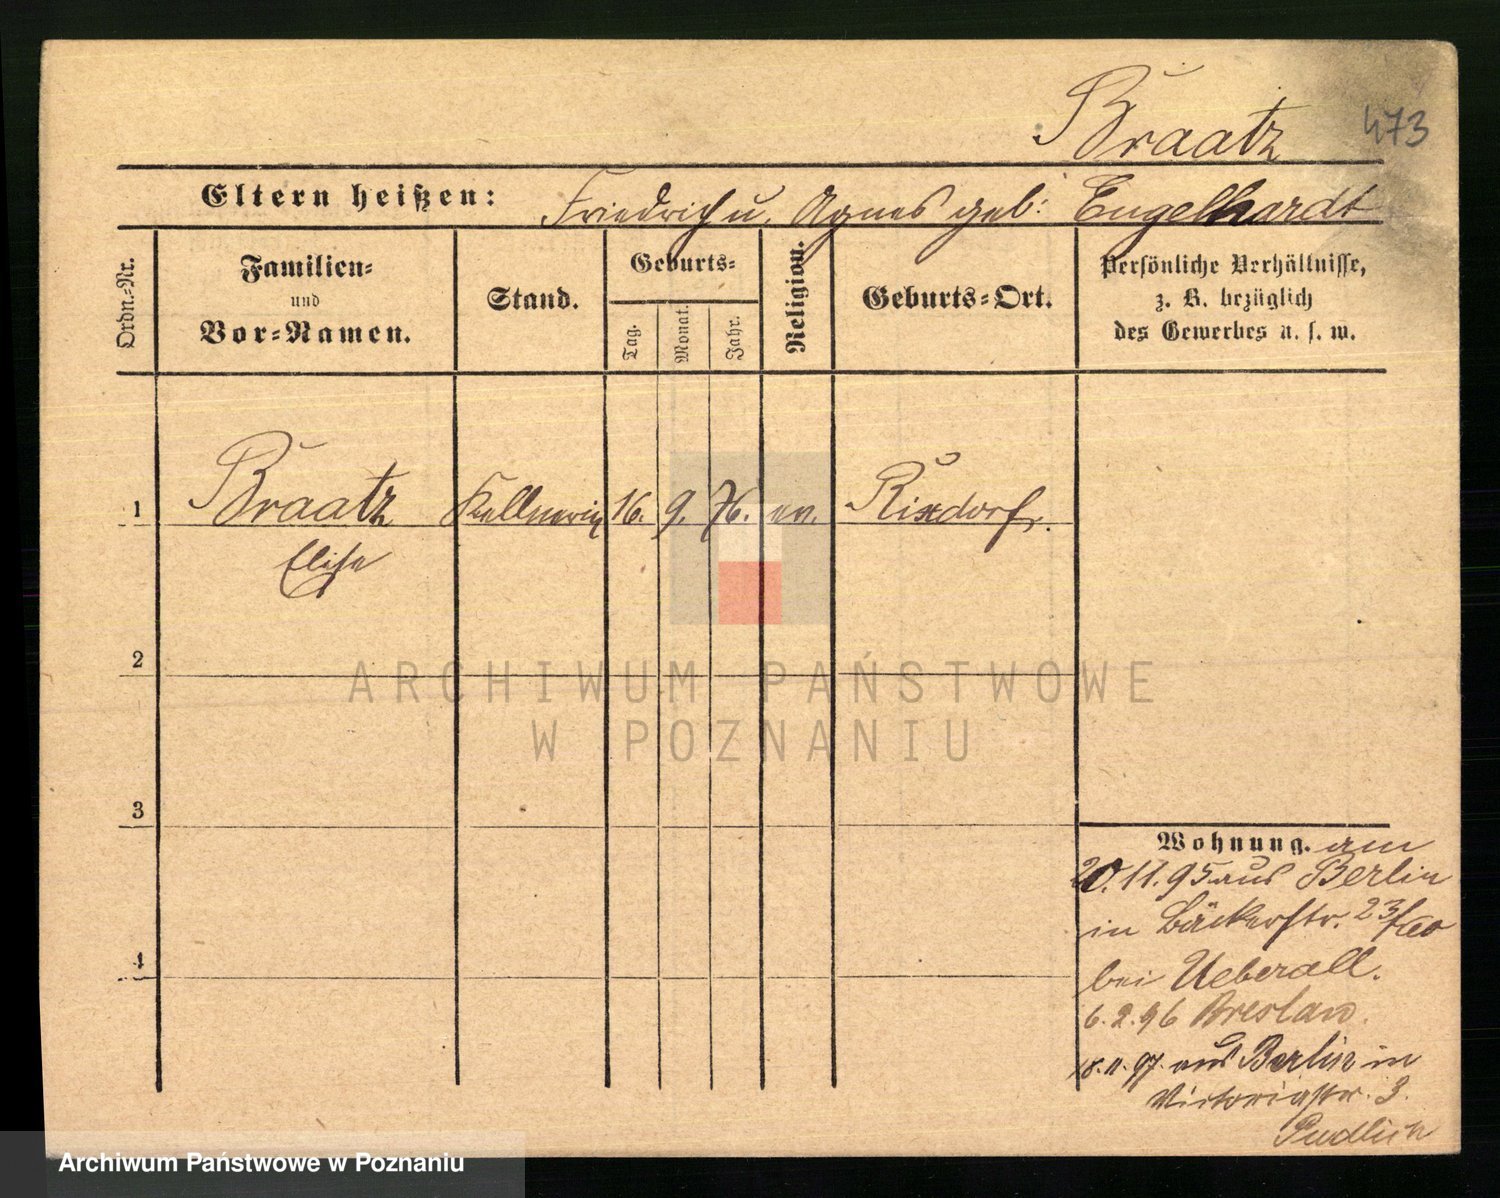 Braatz 473
Eltern heißen: Friedrich u. Agnes geb: Engelhardt
Ordn.-Nr.
Familien-
und
Vor-Namen.
Stand.
Geburts-
Tag.
Monat.
Jahr.
Religion.
Geburts-Ort.
Persönliche Verhältnisse,
z. B. bezüglich
des Gewerbes u. s. w.
1 Braatz Kellnerin 16. 9. 76. ev. Rixdorf.
Elise
2
ARCHIWUM PAŃSTWOWE
W POZNANIU
3
4
Wohnung. am
20.11.95 aus Berlin
in Bäckerstr. 23/
bei Ueberall.
6.2.96 Breslau.
18.11.97. aus Berlin in
Victoriastr. 3.
Archiwum Państwowe w Poznaniu